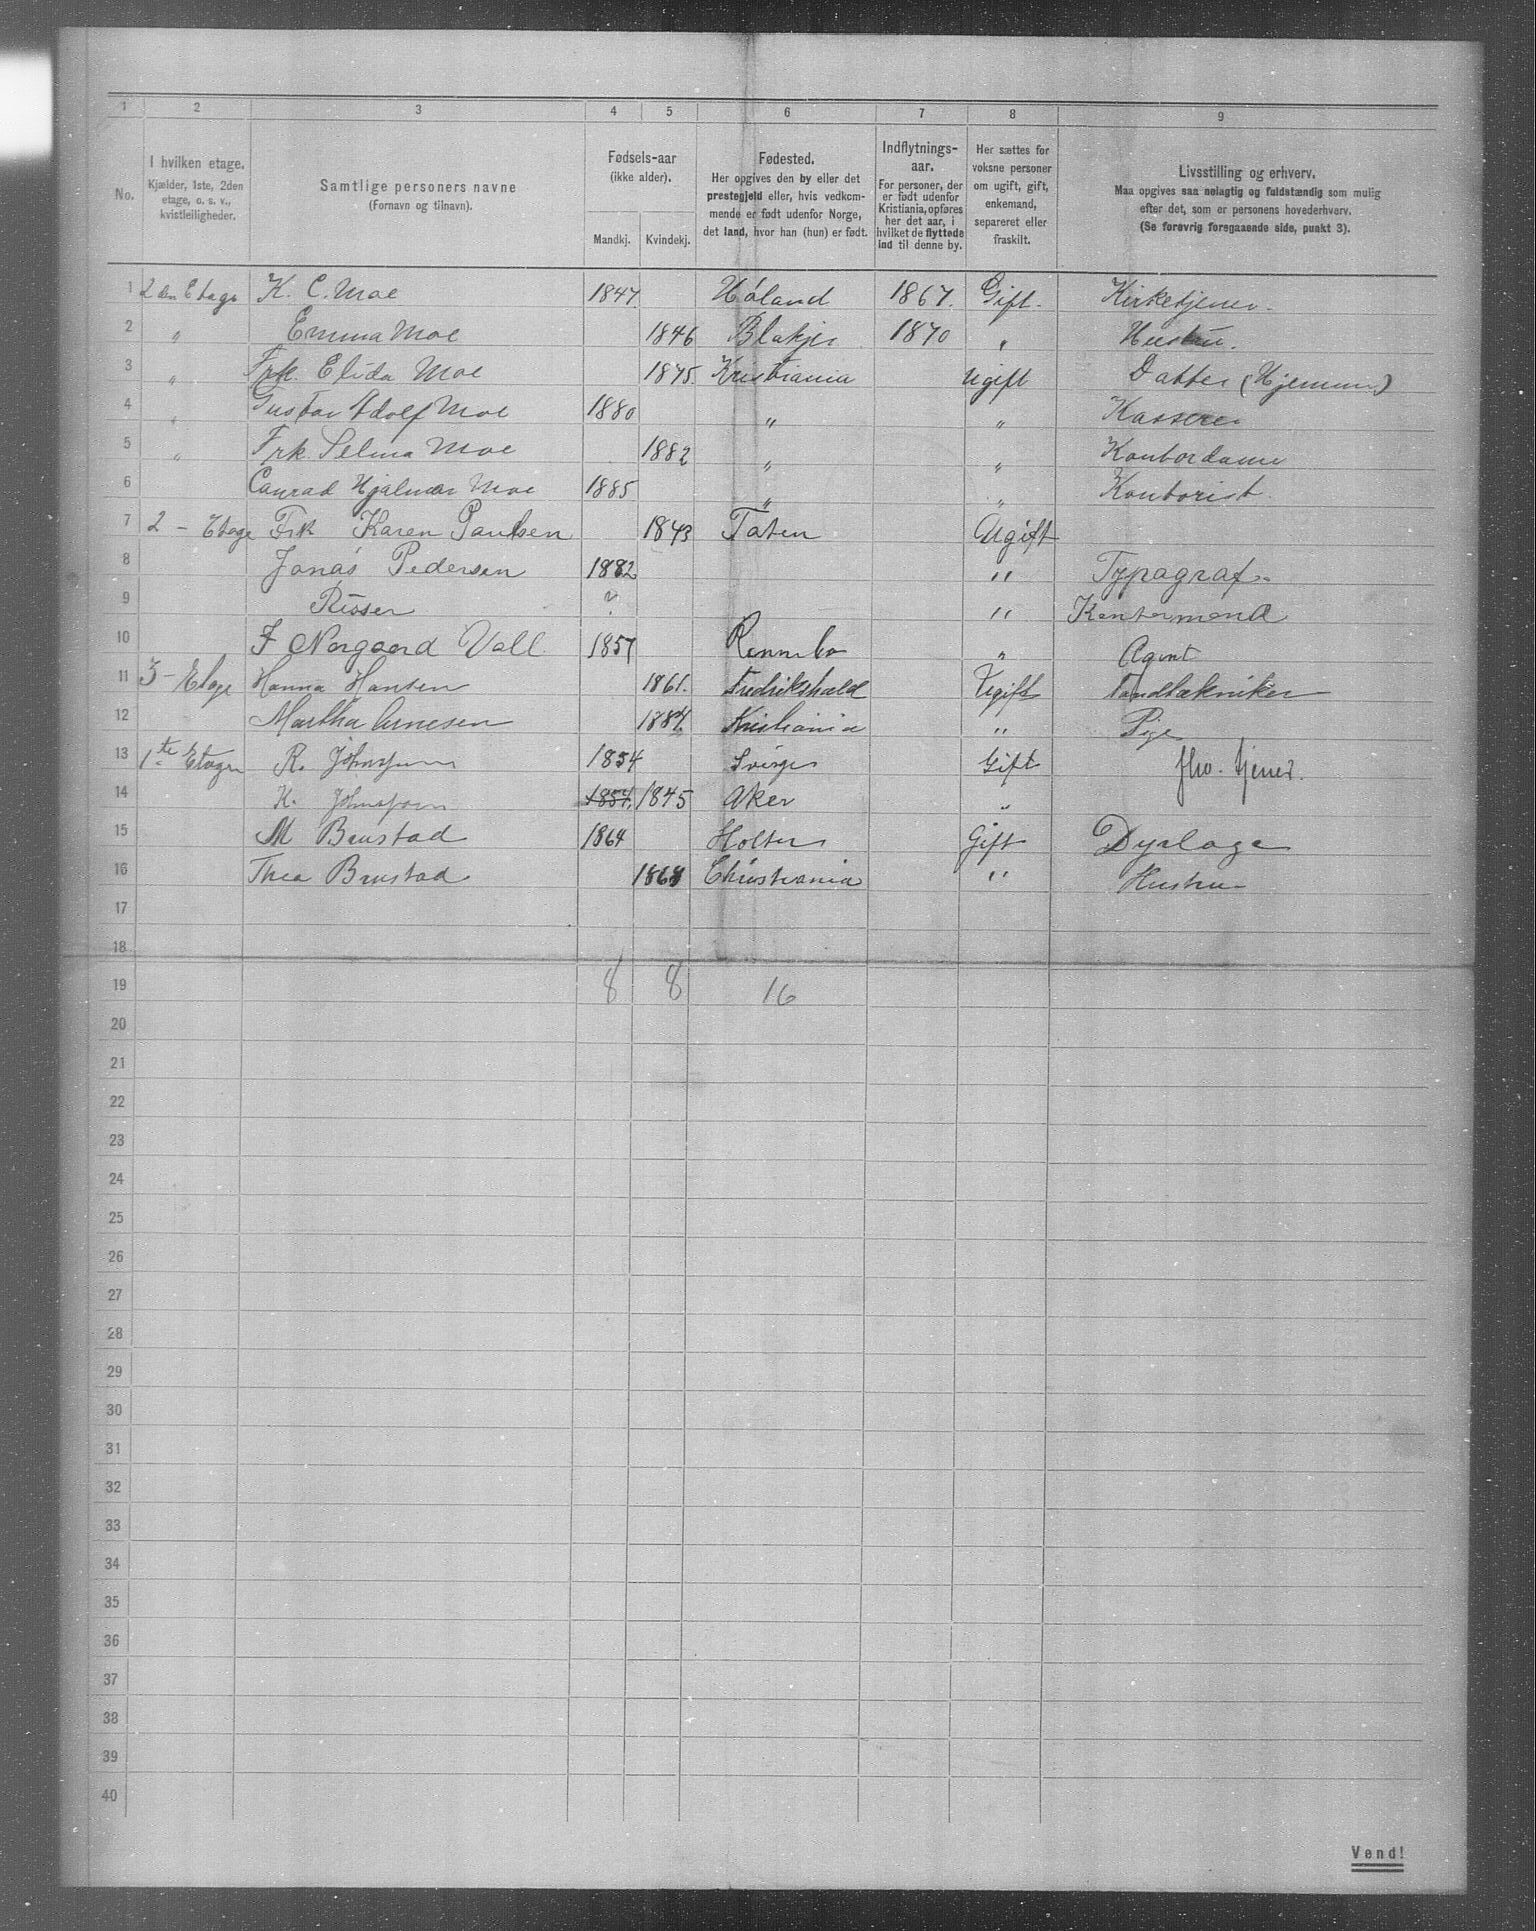 1 2 3 4 5 6 7 8 9
No.
I hvilken etage.
Kjælder, 1ste, 2den
etage, o. s. v.,
kvistleiligheder.
Samtlige personers navne
(Fornavn og tilnavn).
Fødsels-aar
(ikke alder).
Mandkj. Kvindekj.
Fødested.
Her opgives den by eller det
prestegjeld eller, hvis vedkom-
mende er født udenfor Norge,
det land, hvor han (hun) er født.
Indflytnings-
aar.
For personer, der
er født udenfor
Kristiania, opføres
her det aar, i
hvilket de flyttede
ind til denne by.
Her sættes for
voksne personer
om ugift, gift,
enkemand,
separeret eller
fraskilt.
Livsstilling og erhverv.
Maa opgives saa nøiagtig og fuldstændig som mulig
efter det, som er personens hovederhverv.
(Se forøvrig foregaaende side, punkt 3).
1 2den Etage K. C. Moe 1847 Høland 1867. Gift. Kirketjener.
2 " Emma Moe 1846 Blakjer 1870 " Hustru.
3 " Frk. Elida Moe 1875. Kristiania Ugift Datter (Hjemme)
4 " Gustav Adolf Moe 1880 " " Kasserer
5 " Frk. Selma Moe 1882 " " Kontordame
6 Conrad Hjalmar Moe 1885 " " Kontorist.
7 2 - Etage Frk Karen Paulsen 1843 Toten Ugift
8 Jonas Pedersen 1882 " Typograf.
9 Risser ? " Kontormand
10 F Norgaard Vall 1857 Rennebo " Agent
11 3 - Etage Hanna Hansen 1861. Fredrikshald Ugift Tandtekniker
12 Martha Arnesen 1884. Kristiania " Pige
13 1ste Etage R. Johnsen 1854 Sverge Gift tjener.
14 K. Johnsen 1854. 1845 Aker "
15 M Brustad 1864 Holter Gift Dyrlæge
16 Thea Brustad 1868 Christiania " Hustru
17
18
19 8 8 16
20
21
22
23
24
25
26
27
28
29
30
31
32
33
34
35
36
37
38
39
40
Vend!